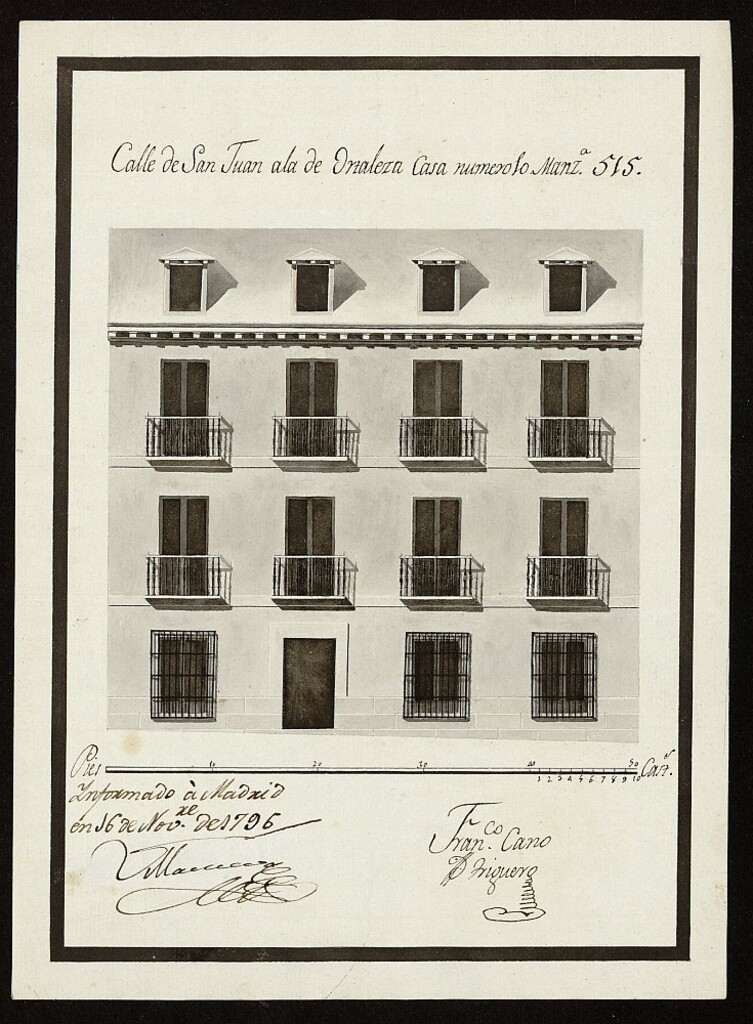 Calle de San Juan ala de Ortaleza Casa numero 10 Manz.ª 515.
Pies 10 20 30 40 50 Cast.ˢ
1 2 3 4 5 6 7 8 9 10
Informado à Madrid
en 16 de Nov.ʳᵉ de 1796
Villanueva
Fran.ᶜᵒ Cano
Triguero